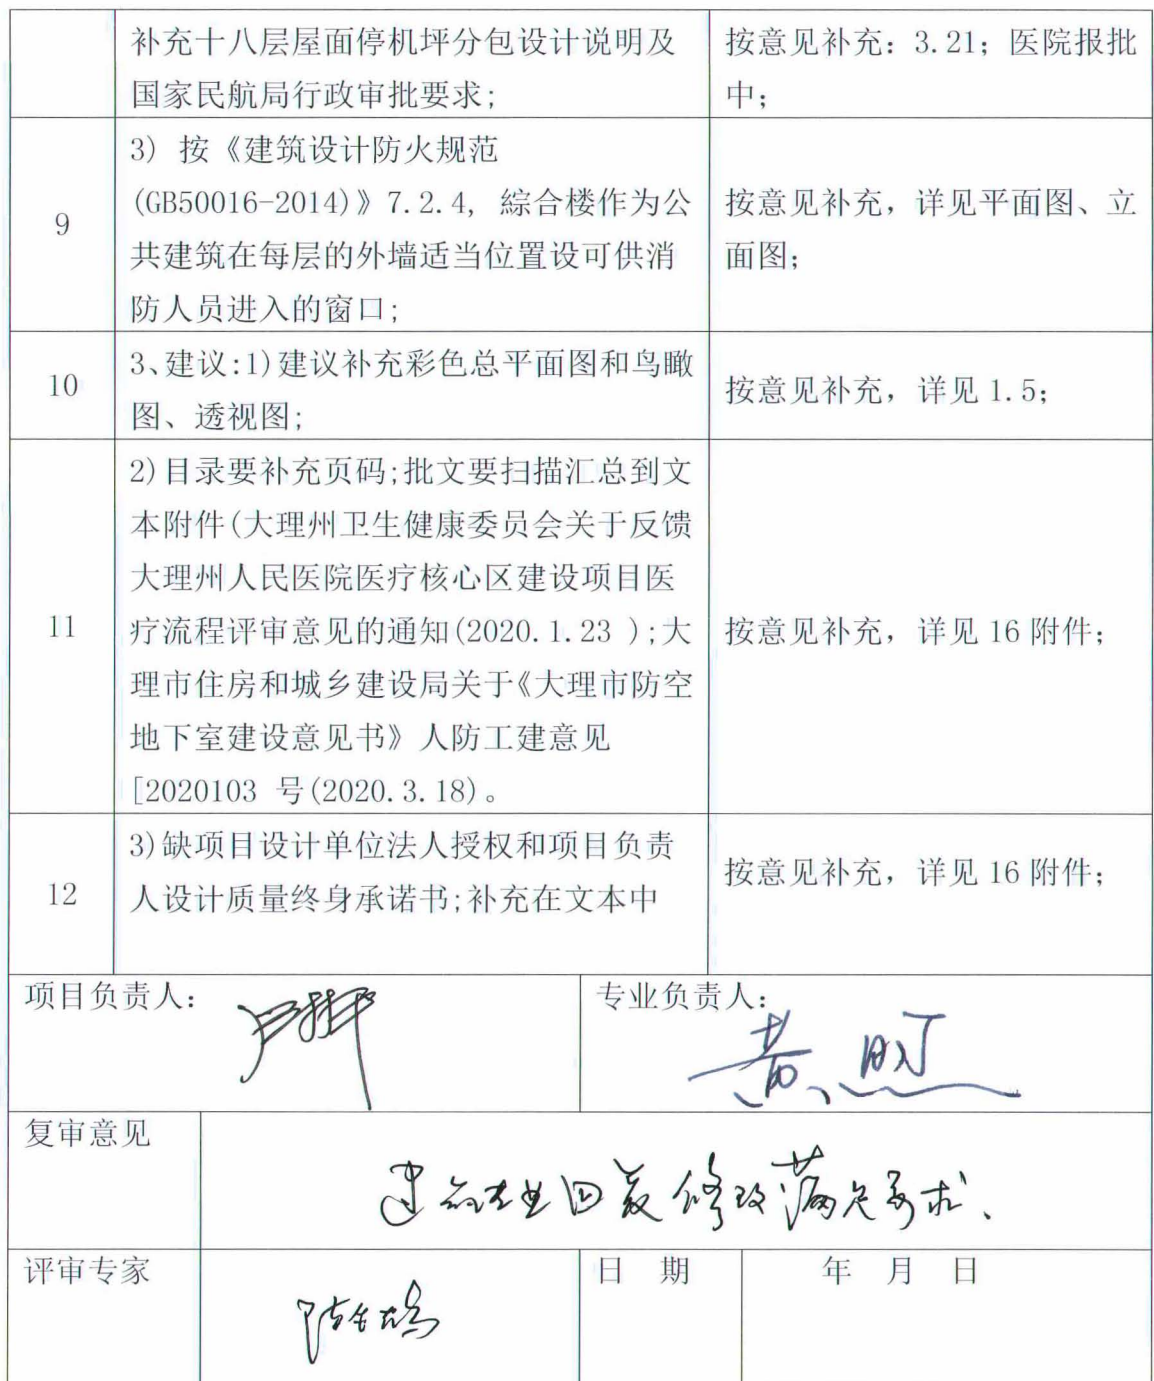 补充十八层屋面停机坪分包设计说明及
国家民航局行政审批要求;
按意见补充：3.21；医院报批
中；
9
3) 按《建筑设计防火规范
(GB50016-2014)》7.2.4, 綜合楼作为公
共建筑在每层的外墙适当位置设可供消
防人员进入的窗口;
按意见补充，详见平面图、立
面图；
10
3、建议:1)建议补充彩色总平面图和鸟瞰
图、透视图;
按意见补充，详见 1.5；
11
2)目录要补充页码;批文要扫描汇总到文
本附件(大理州卫生健康委员会关于反馈
大理州人民医院医疗核心区建设项目医
疗流程评审意见的通知(2020.1.23 );大
理市住房和城乡建设局关于《大理市防空
地下室建设意见书》人防工建意见
[2020103 号(2020.3.18)。
按意见补充，详见 16 附件；
12
3)缺项目设计单位法人授权和项目负责
人设计质量终身承诺书;补充在文本中
按意见补充，详见 16 附件；
项目负责人：
专业负责人：
黄
复审意见
建筑专业回复修改满足要求、
评审专家
日 期
年 月 日